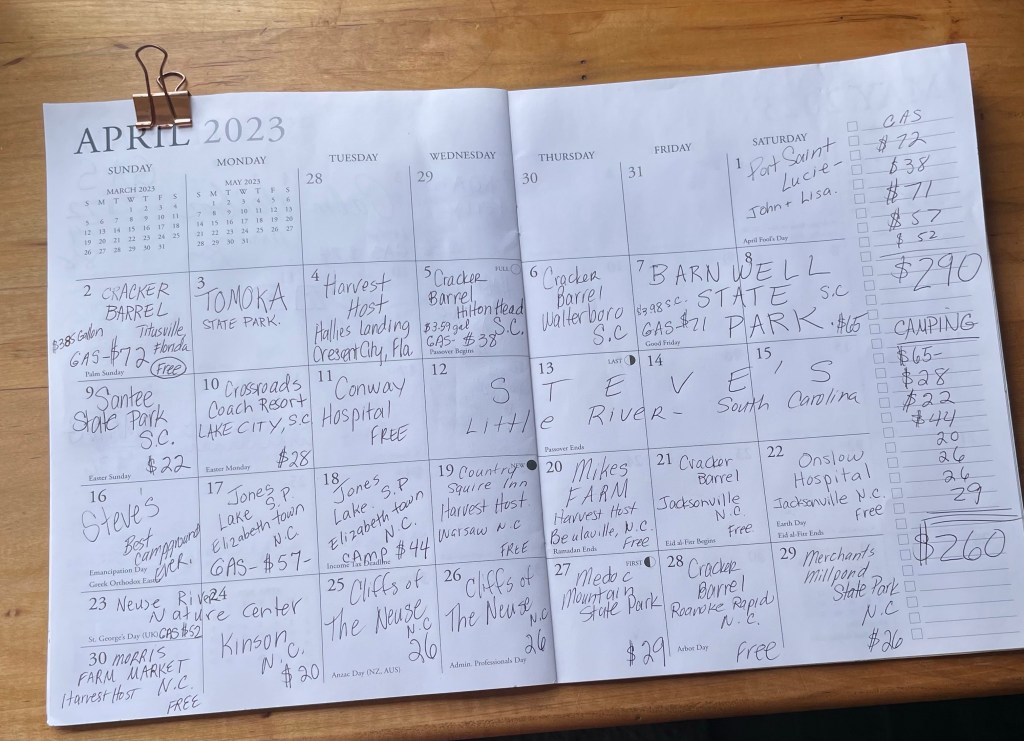 APRIL 2023
SUNDAY
MONDAY
TUESDAY
WEDNESDAY
THURSDAY
FRIDAY
SATURDAY
MARCH 2023
S M T W T F S
1 2 3 4
5 6 7 8 9 10 11
12 13 14 15 16 17 18
19 20 21 22 23 24 25
26 27 28 29 30 31
MAY 2023
S M T W T F S
1 2 3 4 5 6
7 8 9 10 11 12 13
14 15 16 17 18 19 20
21 22 23 24 25 26 27
28 29 30 31
28
29
30
31
1
Port Saint
Lucie -
John + Lisa.
April Fool's Day
2
CRACKER
BARREL
$3.85 Gallon
Titusville,
Florida
GAS-$72
Free
Palm Sunday
3
TOMOKA
STATE PARK.
4
Harvest
Host
Hallies Landing
Cresent City, Fla
5
FULL
Cracker
Barrel
Hilton Head
$3.59 gal
S.C.
GAS- $38
Passover Begins
6
Cracker
Barrel
Walterboro
S.C
7
8
BARNWELL
$3.98 S.C.
STATE S.C
GAS-$71
PARK. $65
Good Friday
9
Santee
State Park
S.C.
$22
Easter Sunday
10
Crossroads
Coach Resort
LAKE CITY, S.C
$28
Easter Monday
11
Conway
Hospital
FREE
12
13
LAST
14
15
STEVE'S
Little River- South Carolina
Passover Ends
16
Steve's
Best
campground
ever.
Emancipation Day
Greek Orthodox Easter
17
Jones
Lake S.P.
Elizabeth town
N.C
GAS- $57-
18
Jones
Lake S.P
Elizabeth town
N.C.
CAMP $44
Income Tax Deadline
19
NEW
Country
Squire Inn
Harvest Host
Warsaw N.C
FREE
20
Mikes
FARM
Harvest Host
Beulaville, N.C.
Free
Ramadan Ends
21
Cracker
Barrel
Jacksonville
N.C.
Free
Eid al-Fitr Begins
22
Onslow
Hospital
Jacksonville N.C.
Free
Earth Day
Eid al-Fitr Ends
23
24
Neuse River
Nature Center
St. George's Day (UK)
GAS $52
Kinson,
N.C.
$20
25
Cliffs of
The Neuse
N.C
26
Anzac Day (NZ, AUS)
26
Cliffs of
The Neuse
N.C
26
Admin. Professionals Day
27
FIRST
Medoc
Mountain
State Park
$29
28
Cracker
Barrel
Roanoke Rapid
N.C.
Free
Arbor Day
29
Merchants
millpond
State Park
N.C
$26
30
MORRIS
FARM MARKET
Harvest Host N.C.
FREE
GAS
$72
$38
$71
$57
$52
$290
CAMPING
$65-
$28
$22
$44
20
26
26
29
$260